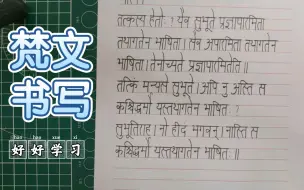 梵文
书写
hǎo hǎo xué xí
好好学习
तत्कस्य हेतोः ? यैव सुभूते प्रज्ञापारमिता
तथागतेन भाषिता । सैव अपारमिता तथागतेन
भाषिता । तेनोच्यते प्रज्ञापारमितेति ॥
तत्किं मन्यसे सुभूते । अपि नु अस्ति स
कश्चिद्धर्मो यस्तथागतेन भाषितः ?
सुभूतिराह । नो हीदं भगवन् । नास्ति स
कश्चिद्धर्मो यस्तथागतेन भाषितः ॥